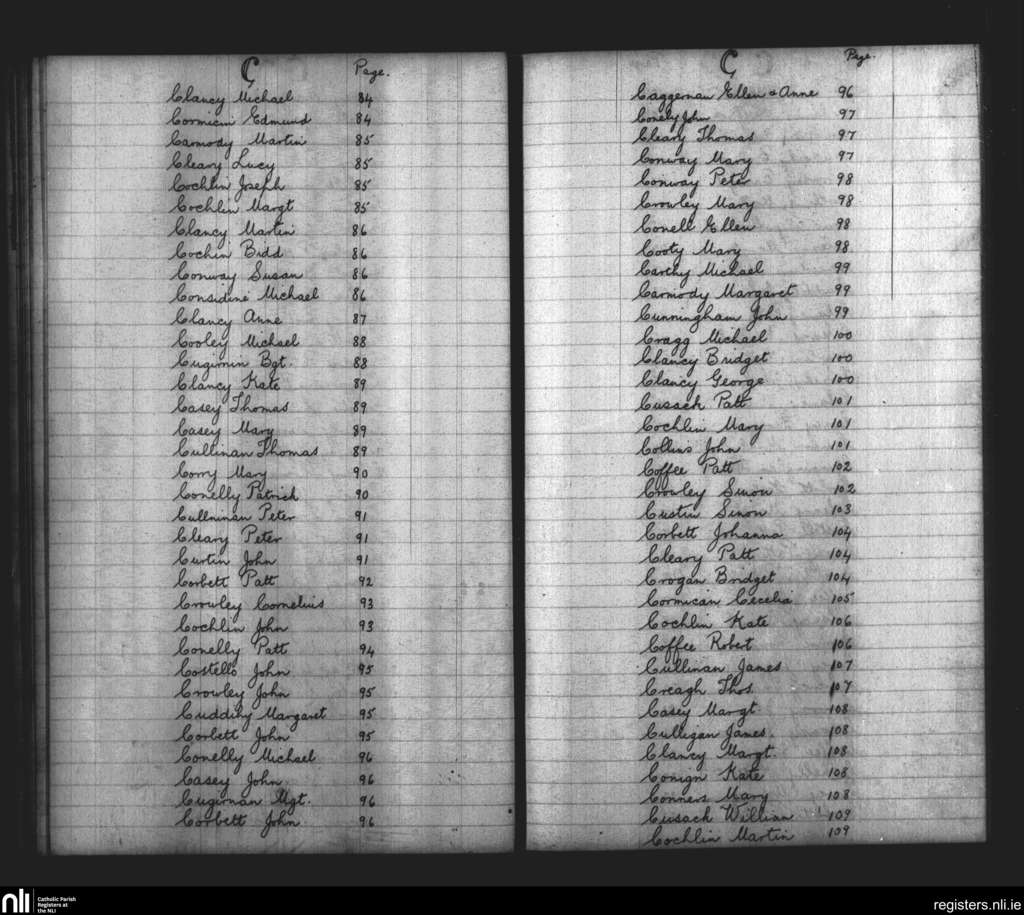 C
Page.
Clancy Michael 84
Cormicin Edmund 84
Carmody Martin 85
Cleary Lucy 85
Cochlin Joseph 85
Cochlin Margt 85
Clancy Martin 86
Cochin Bidd 86
Conway Susan 86
Considine Michael 86
Clancy Anne 87
Cooley Michael 88
Cugirnin Bgt. 88
Clancy Kate 89
Casey Thomas 89
Casey Mary 89
Cullinan Thomas 89
Corry Mary 90
Conelly Patrick 90
Cullninan Peter 91
Cleary Peter 91
Curtin John 91
Corbett Patt 92
Crowley Cornelius 93
Cochlin John 93
Conelly Patt 94
Costello John 95
Crowley John 95
Cuddihy Margaret 95
Corbett John 95
Conelly Michael 96
Casey John 96
Cugirnan Mgt. 96
Corbett John 96
C
Page.
Caggernan Ellen & Anne 96
Conely John 97
Cleary Thomas 97
Conway Mary 97
Conway Peter 98
Crowley Mary 98
Conell Ellen 98
Cooty Mary 98
Carthy Michael 99
Carmody Margaret 99
Cunningham John 99
Cragg Michael 100
Clancy Bridget 100
Clancy George 100
Cusack Patt 101
Cochlin Mary 101
Collins John 101
Coffee Patt 102
Crowley Simon 102
Custin Simon 103
Corbett Johanna 104
Cleary Patt 104
Crogan Bridget 104
Cormican Cecelia 105
Cochlin Kate 106
Coffee Robert 106
Cullinan James 107
Creagh Thos. 107
Casey Margt. 108
Culligan James. 108
Clancy Margt. 108
Conign Kate 108
Conners Mary 108
Cusack Willian 109
Cochlin Martin 109
nli
Catholic Parish
Registers at
the NLI
registers.nli.ie